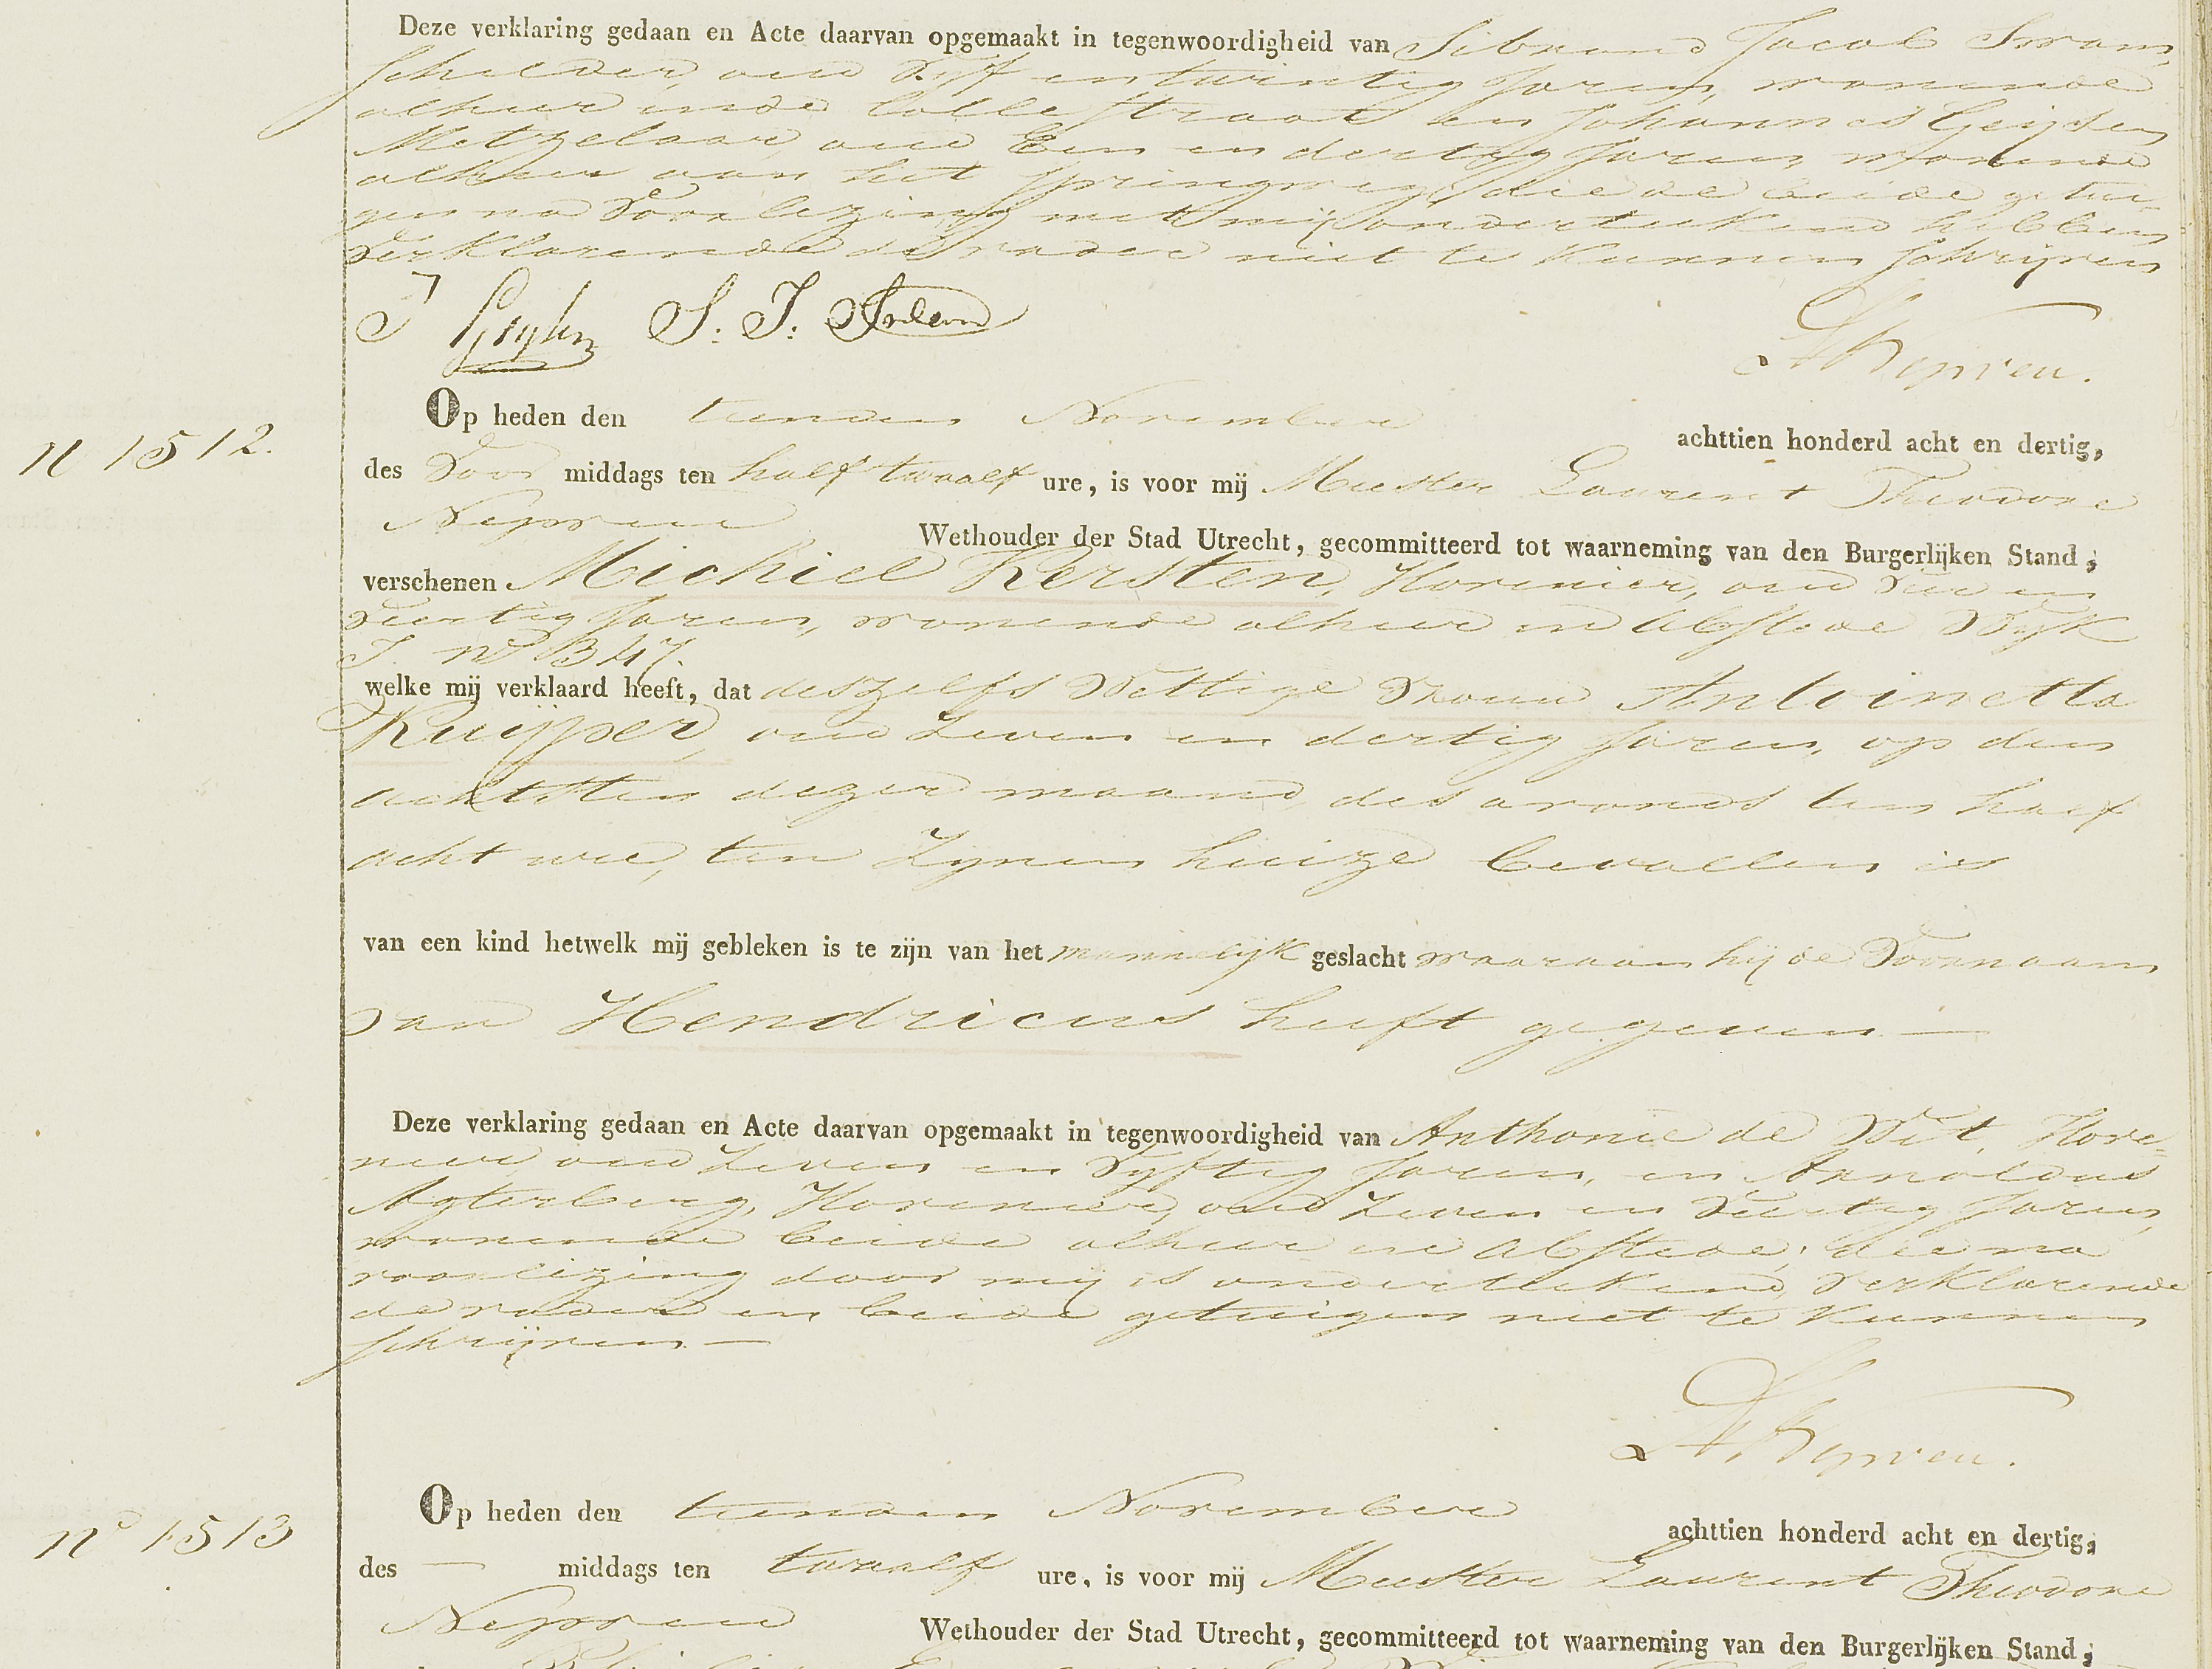 Deze verklaring gedaan en Acte daarvan opgemaakt in tegenwoordigheid van Sibrand Jacob
Schilder, oud Vyf en twintig Jaren, wonende
alhier in de straat en Johannes Geijsen
Metzelaar, oud Een en dertig Jaren, wonende
alhier aan het springweg, die de beide getui-
gen na Voorlezing met mij onderteekend hebben
Verklarende de vader niet te kunnen schrijven
S. J.
Op heden den tienden November achttien honderd acht en dertig,
N 1512.
des Voor middags ten half twaalf ure, is voor mij Meester Laurent Theodore
Nepveu Wethouder der Stad Utrecht, gecommitteerd tot waarneming van den Burgerlijken Stand;
verschenen Michiel Kersten, Hovenier, oud Vier en
Veertig Jaren, wonende alhier in Abstede Wyk
J. no B 47.
welke mij verklaard heeft, dat deszelfs Wettige Vrouw Antoinetta
Kuijper, oud Zeven en dertig Jaren, op den
achtsten dezer maand, des avonds ten half
acht ure, ten Zynen huize bevallen is
van een kind hetwelk mij gebleken is te zijn van het mannelijk geslacht waaraan hij de Voornaam
van Hendricus heeft gegeven —
Deze verklaring gedaan en Acte daarvan opgemaakt in tegenwoordigheid van Anthonie de Wit, Hove=
nier oud Zeven en Vyftig Jaren, en Arnoldus
Agterberg, Hovenier, oud Zeven en Veertig Jaren,
wonende beide alhier in Abstede, die na
voorlezing door mij is onderteekend, Verklarende
de vader en beide getuigen niet te kunnen
schrijven —
Nepveu.
Op heden den tienden November achttien honderd acht en dertig,
no 1513
des — middags ten twaalf ure, is voor mij Meester Laurent Theodore
Nepveu Wethouder der Stad Utrecht, gecommitteerd tot waarneming van den Burgerlijken Stand;